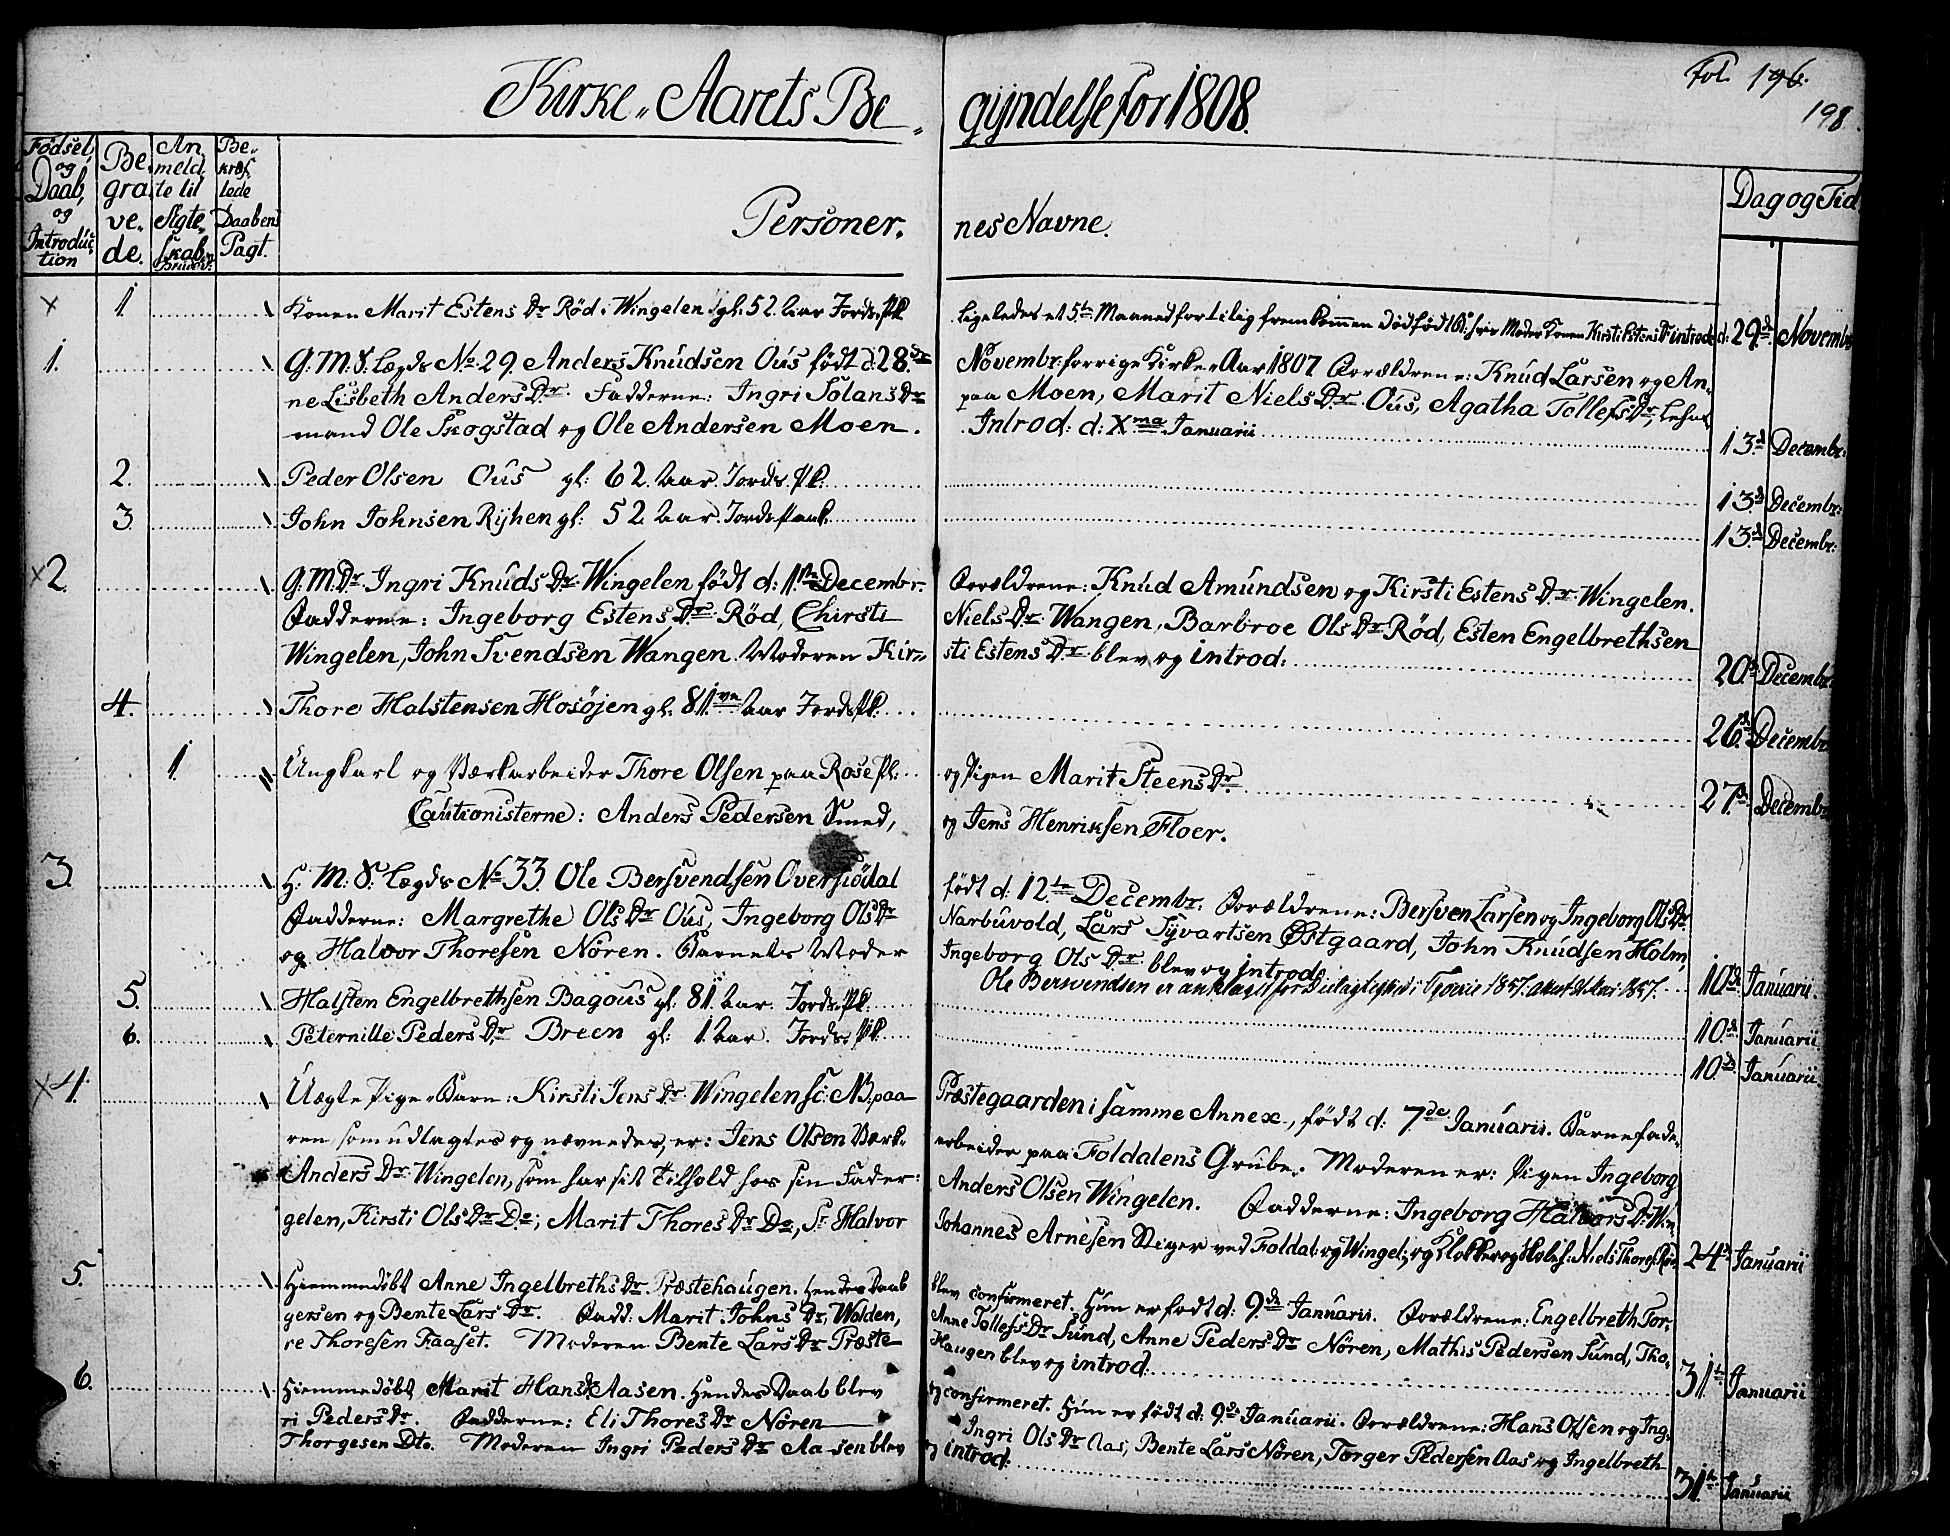 Fol. 196.
198.
Kirke„ Aarets Be„ gyndelse for 1808.
Fødsel, og Daab, og Introduc tion
Be gra ve„ de.
An meld„ te til Ægte„ skab
Be„ kræf„ tede Daabens Pagt.
Personer„ nes Navne.
Dag og Tid
× 1. Konen Marit Estens Dr Röd i Wingelen gl: 52 Aar Jords: Pk ligeledes et 5te Maaned for tilig fremkommen dödfödt hvis Moder Konen Kirsti Estens Dr introd d: 29de Novembr
1. G: M: S: Lægds No 29. Anders Knudsen Ous født d: 28de Novembr: forrige Kirke Aar 1807 Forældrene: Knud Larsen og An„
ne Lisbeth Anders Dr. Fadderne: Ingri Tolans Dr paa Moen, Marit Niels Dr Ous, Agatha Tollefs Dr,
mand Ole Skogstad og Ole Andersen Moen. Introd: d: Xma Januarii 13d Decembr:
2. Peder Olsen Ous gl: 62 Aar. Jords. Pk: 13d Decembr:
3. John Johnsen Ryhen gl: 52. Aar. Jords 13d Decembr:
×2. G. M. Dr Ingri Knuds Dr Wingelen født d: 1ste Decembr. Forældrene: Knud Amundsen og Kirsti Estens Dr Wingelen.
Fadderne: Ingeborg Estens Dr Röd, Chirsti Niels Dr Wangen, Barbroe Ols Dr Röd, Esten Engelbrethsen
Wingelen, John Svendsen Wangen. Moderen Kir„ sti Estens Dr blev og introd: 20d Decembr
4. Thore Halstensen Hosöjen gl: 81 Aar Jords. Pk. 26d Decembr
1 Ungkarl og Værkarbeider Thore Olsen paa Rose Pl: og Pigen Marit Steens Dr 27d Decembr
Cautionisterne: Anders Pedersen Smed, og Jens Henriksen Floer.
3. H: M: S: Lægds No 33. Ole Bersvendsen Oversiödal født d: 12te Decembr. Forældrene: Bersven Larsen og Ingeborg Ols Dr
Fadderne: Margrethe Ols Dr Ous, Ingeborg Ols Dr Narbuvold, Lars Syvartsen Østgaard, John Knudsen Holm,
og Halvor Thoresen Nören. Barnets Moder Ingeborg Ols Dr blev og introd: 10d Januarii.
Ole Bersvendsen er
5. Halsten Engelbrethsen Bagous gl: 81 Aar. Jords: Pk. 10d Januarii.
6. Peternille Peders Dr Breen gl: 1 Aar. Jords. Pk. 10d Januarii.
×4. Uægte Pige„Barn: Kirsti Jens Dr Wingelen sc: NB. paa Præstegaarden i samme Annex, født d: 7de Januarii. Barnefade„
ren som udlagtes og nævnedes, er: Jens Olsen Værk„ arbeider paa Foldalens Grube. Moderen er: Pigen Ingeborg
Anders Dr Wingelen, som har sit tilhold hos sin Fader: Anders Olsen Wingelen. Fadderne: Ingeborg Halvors Dr Win„
gelen, Kirsti Ols Dr Do, Marit Thores Dr Do, Sr Halvor Johannes Arnesen Stiger ved Foldal: og Wingel: og Klokker og Skoleh: Niels 24d Januarii
5. Hiemmedöbt Anne Ingelbreths Dr Præstehaugen. Hendes Daab blev confirmeret. Hun er født d: 9de Januarii. Forældrene: Engelbreth Tor„
gersen og Bente Lars Dr. Fadd. Marit Johns Dr Wolden, Anne Tollefs Dr Sund, Anne Peders Dr Nören, Mathis Pedersen Sund, Tho„
re Thoresen Faaset. Moderen Bente Lars Dr Præste Haugen blev og introd. 31te Januarii
6. Hiemmedöbt Marit Hans Dr Aasen. Hendes Daab blev og confirmeret. Hun er født d: 9de Januarii. Forældrene: Hans Olsen og Ing„
ri Peders Dr. Fadderne: Eli Thores Dr Nören Ingri Ols Dr Aas, Bente Lars Nören, Torger Pedersen Aas og Ingelbreth
Thorgesen Dto. Moderen Ingri Peders Dr Aasen blev og introd: 31te Januarii